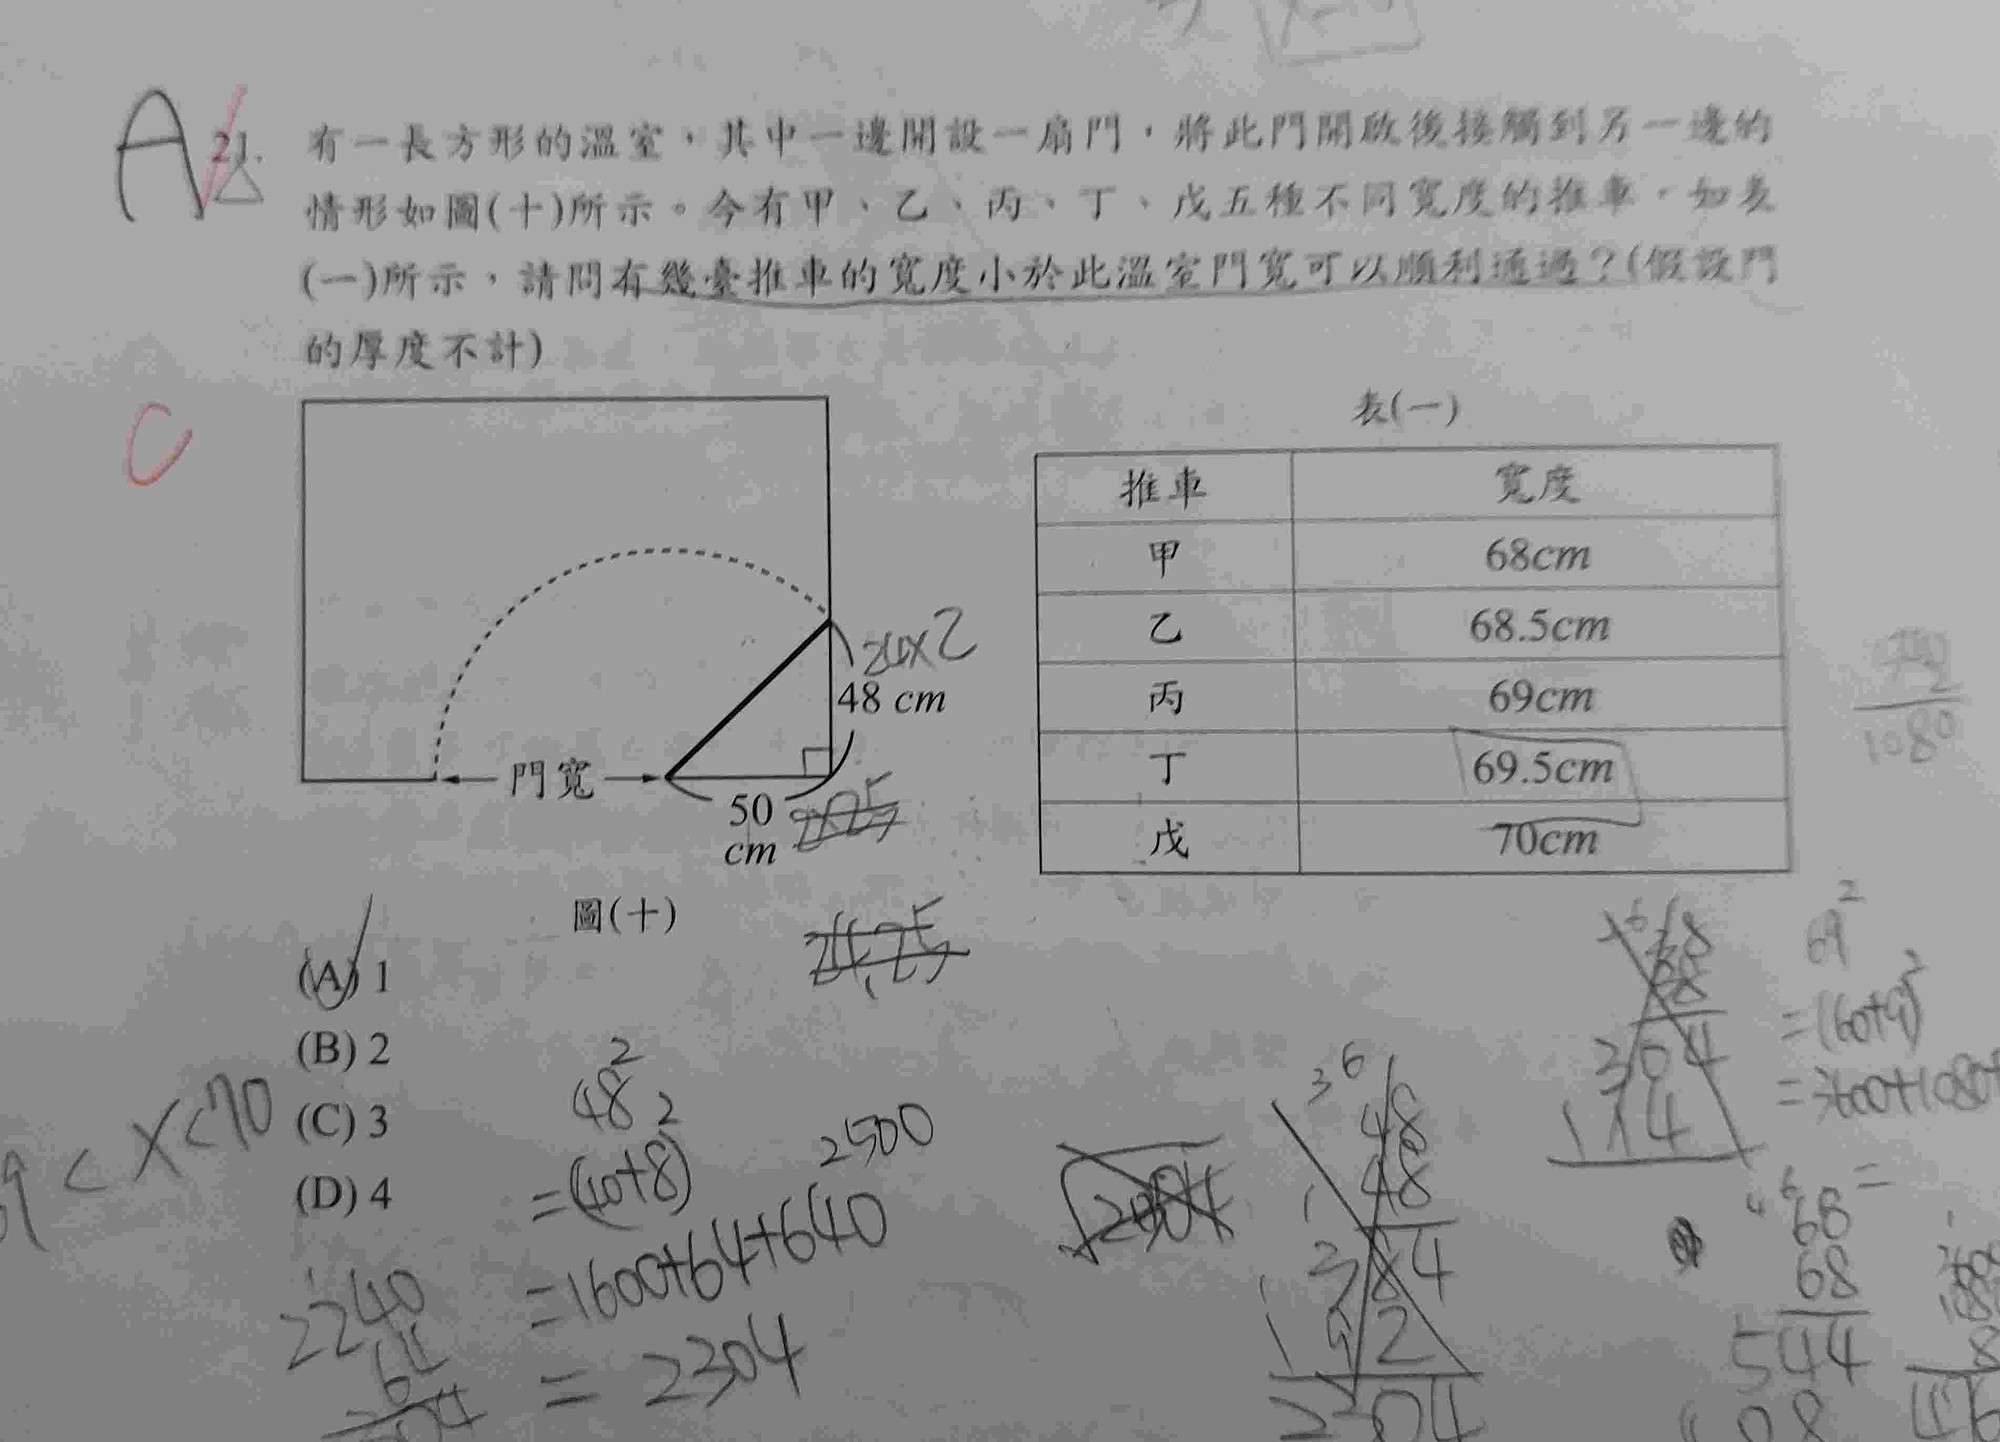 A
21. 有一長方形的溫室，其中一邊開設一扇門，將此門開啟後接觸到另一邊的
情形如圖(十)所示。今有甲、乙、丙、丁、戊五種不同寬度的推車，如表
(一)所示，請問有幾臺推車的寬度小於此溫室門寬可以順利通過？(假設門
的厚度不計)
C
24×2
48 cm
門寬
50
cm
圖(十)
表(一)
推車 寬度
甲 68cm
乙 68.5cm
丙 69cm
丁 69.5cm
戊 70cm
1080
(A) 1
(B) 2
(C) 3
(D) 4
< x < 70
48²
= (40+8)²
= 1600+64+640
= 2304
2500
2240
64
48
48
384
192
2304
69²
= (60+9)²
= 3600+1080+
68
68
544